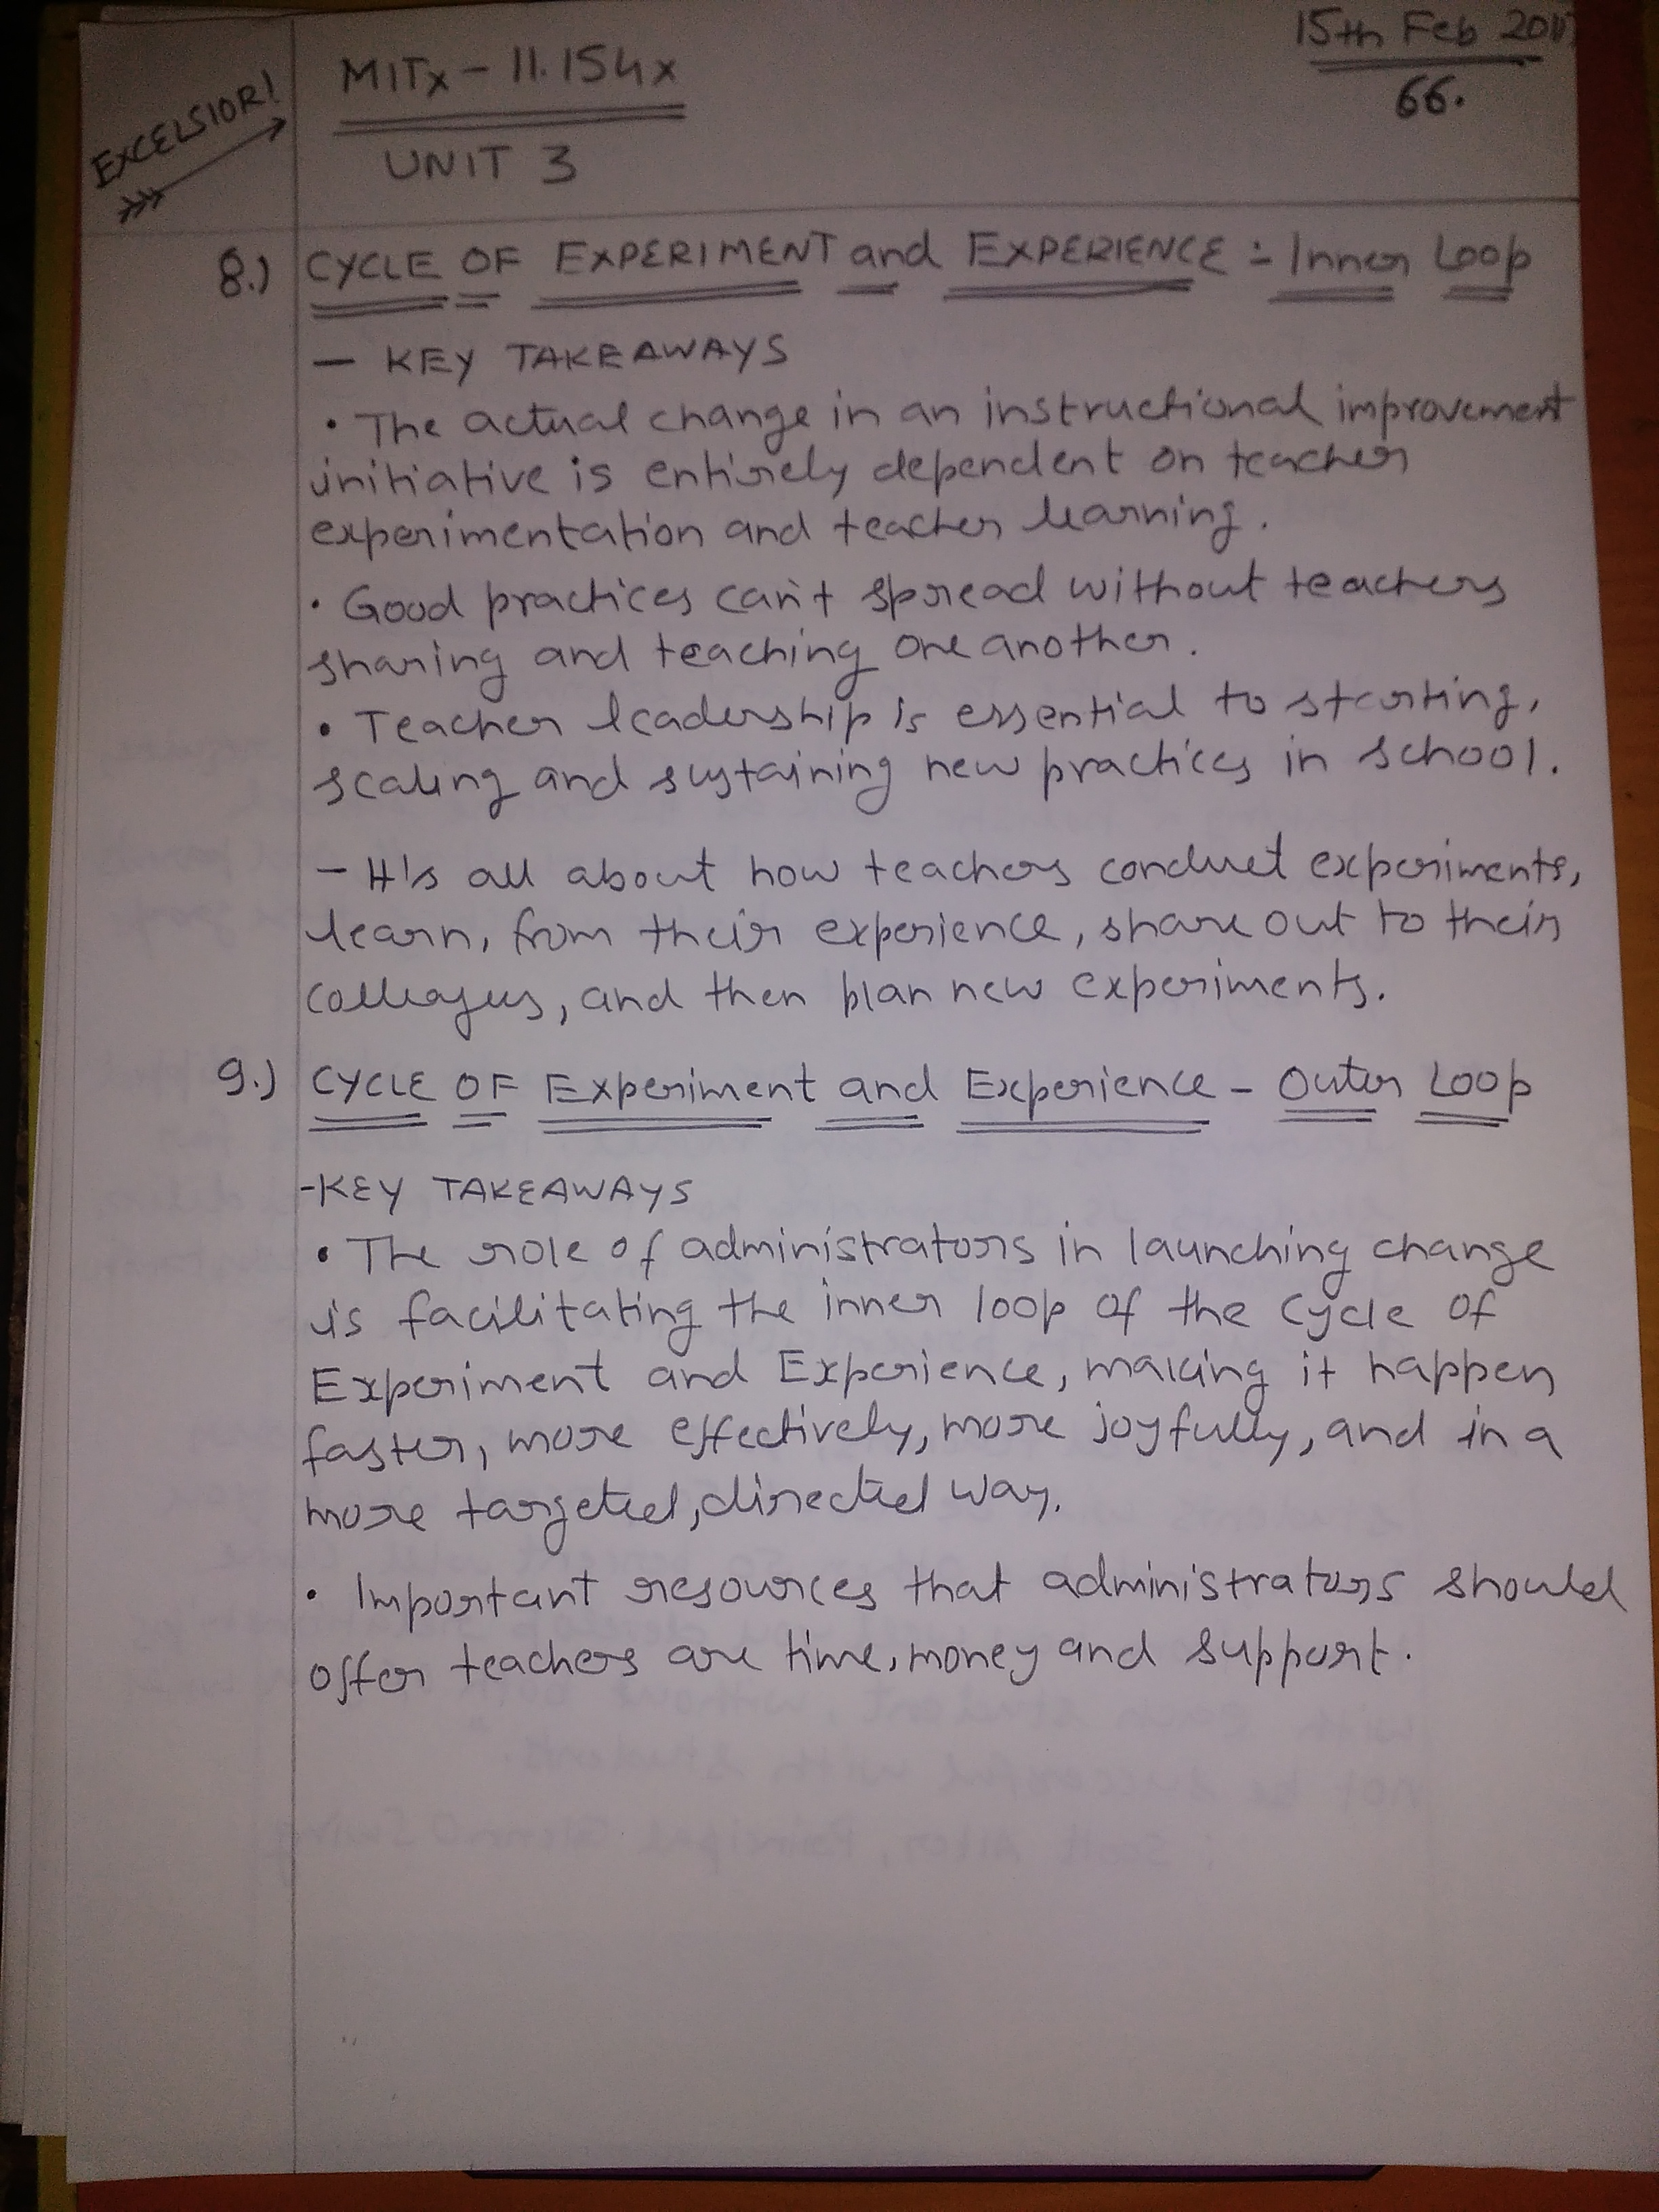 EXCELSIOR!
MITx - 11.154x
UNIT 3
15th Feb
66.
8.) CYCLE OF EXPERIMENT and EXPERIENCE :- Inner Loop
— KEY TAKEAWAYS
• The actual change in an instructional improvement
initiative is entirely dependent on teacher
experimentation and teacher learning.
• Good practices can't spread without teachers
sharing and teaching one another.
• Teacher leadership is essential to starting,
scaling and sustaining new practices in school.
- It's all about how teachers conduct experiments,
learn, from their experience, share out to their
colleagues, and then plan new experiments.
9.) CYCLE OF Experiment and Experience - Outer Loop
- KEY TAKEAWAYS
• The role of administrators in launching change
is facilitating the inner loop of the Cycle of
Experiment and Experience, making it happen
faster, more effectively, more joyfully, and in a
more targeted, directed way.
• Important resources that administrators should
offer teachers are time, money and support.